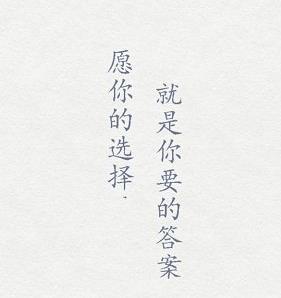 愿你的选择.
就是你要的答案